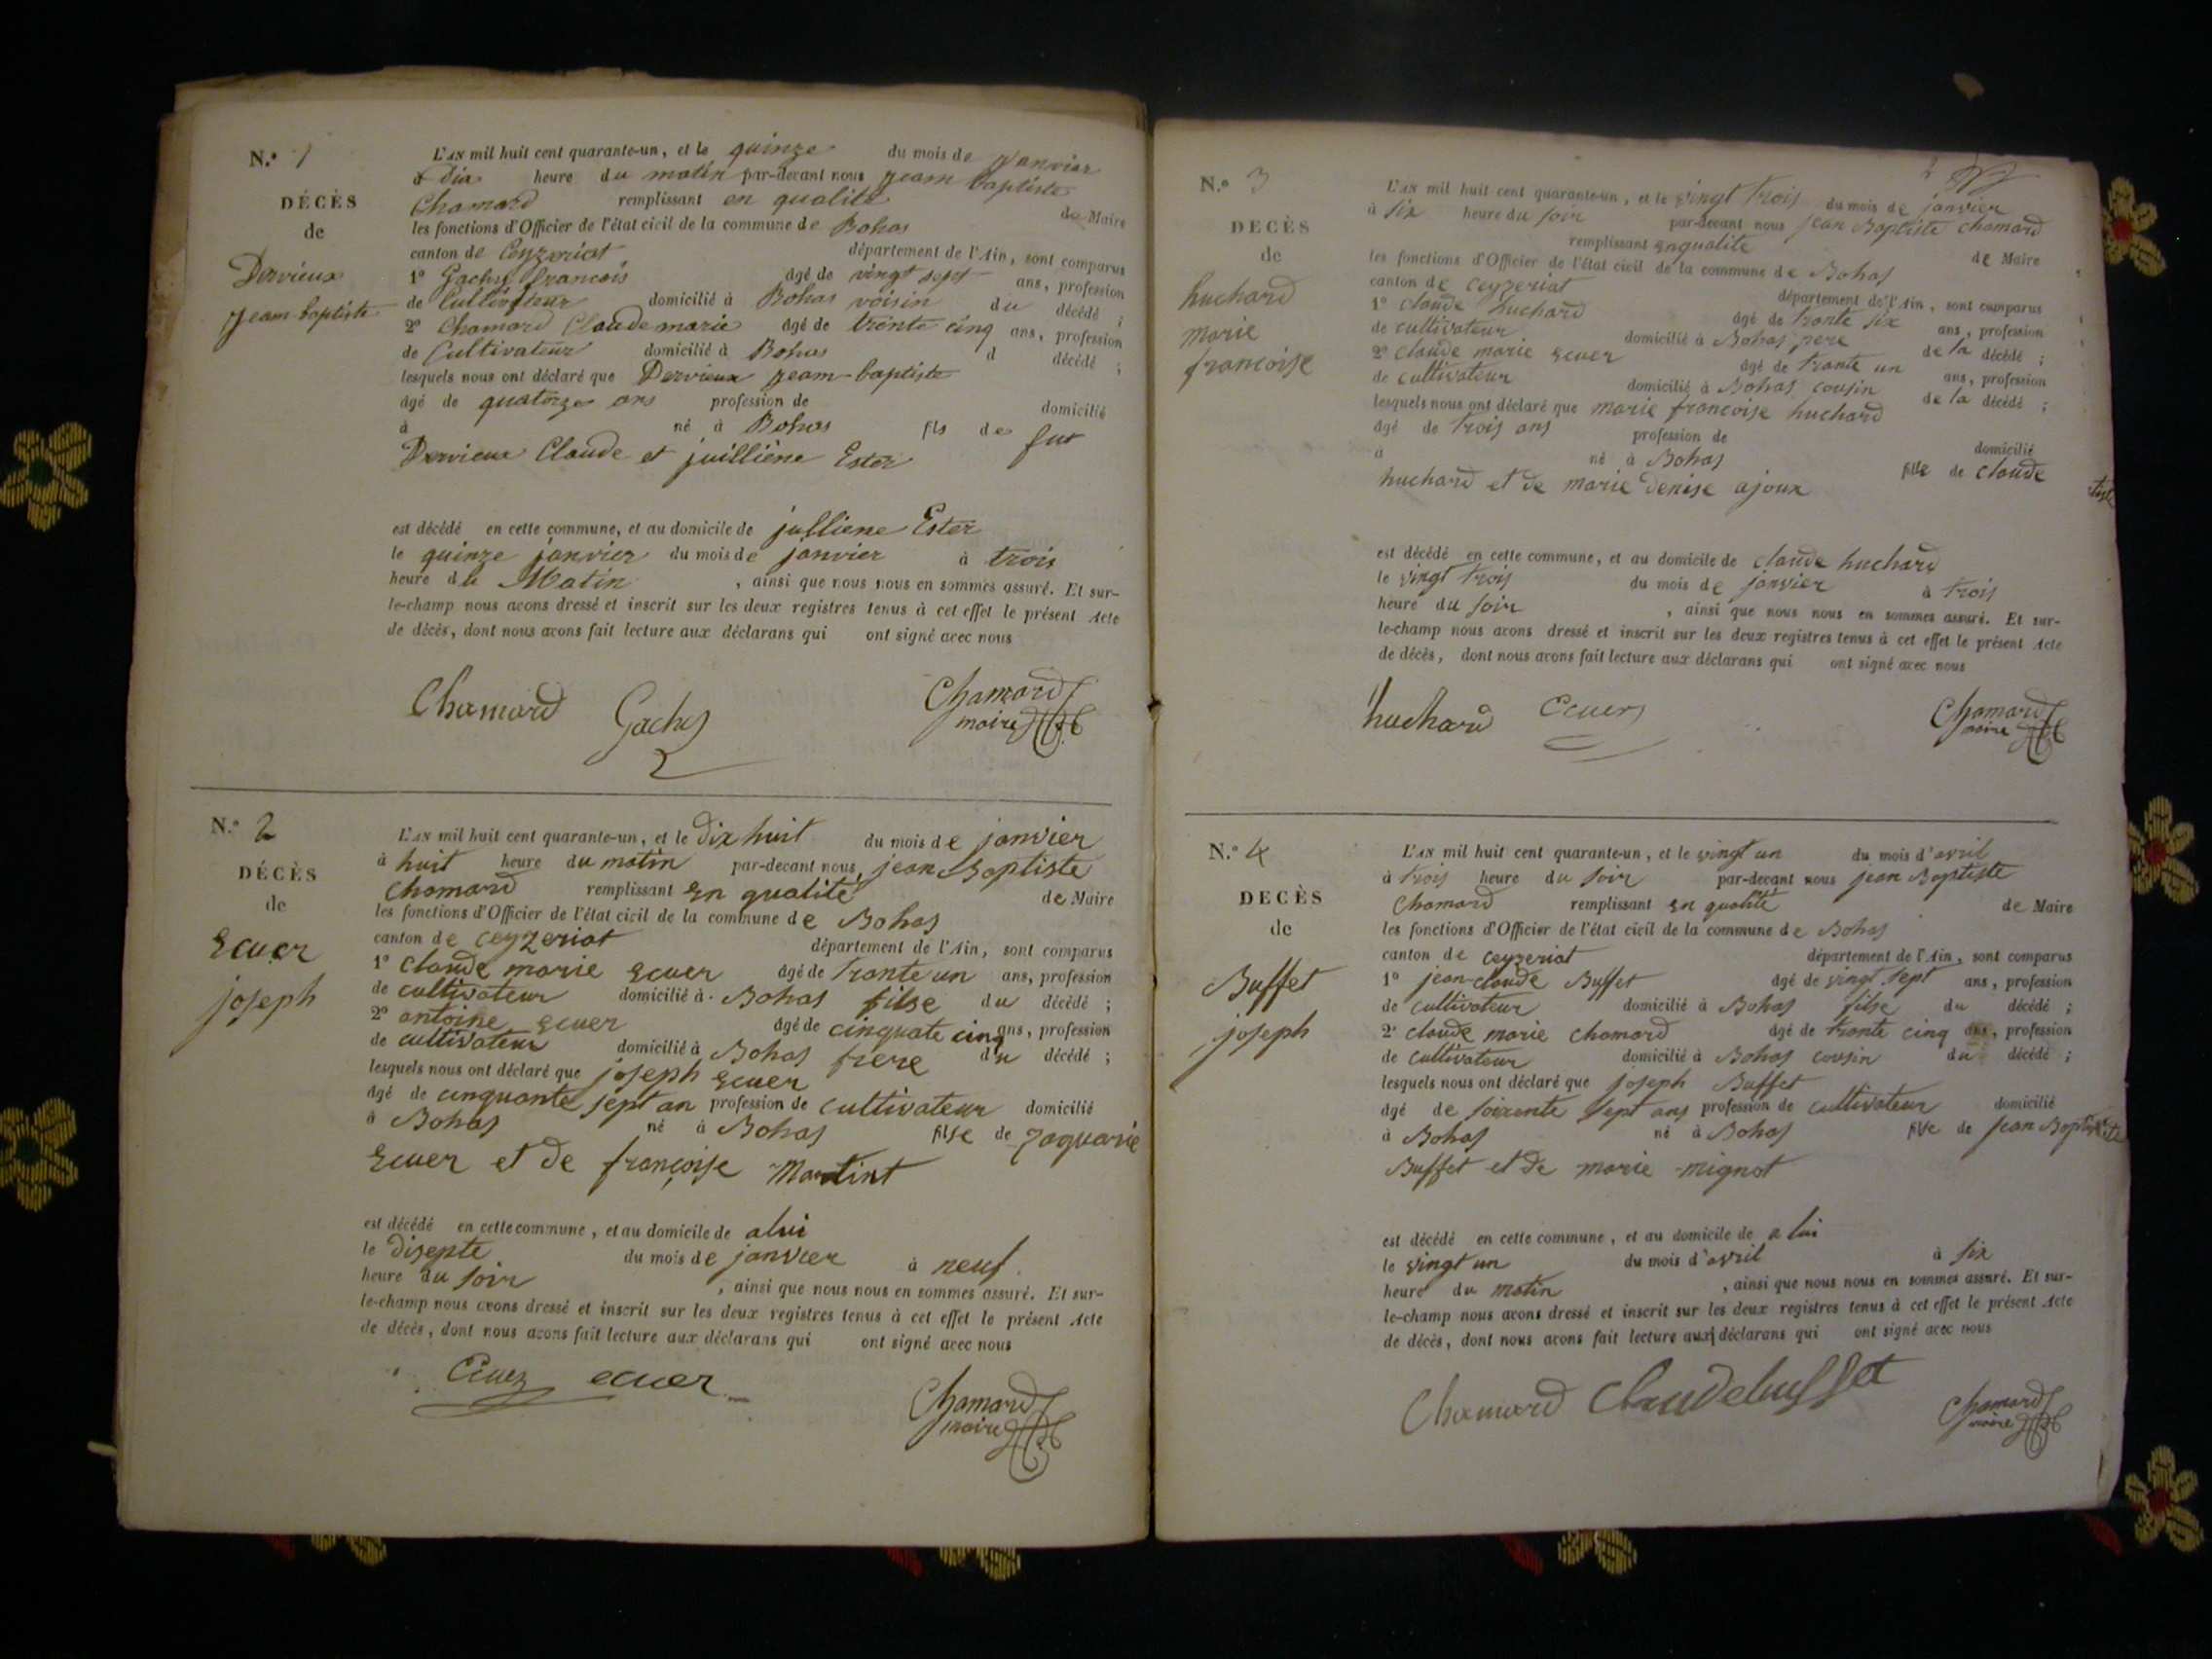 N.º 1
DÉCÈS
de
Dervieux
jeam baptiste
L'AN mil huit cent quarante-un, et le quinze du mois de janvier
à Dix heure du matin par-devant nous jeam baptiste
Chamard remplissant en qualité de Maire
les fonctions d'Officier de l'état civil de la commune de Bohas
canton de Ceyzeriat département de l'Ain, sont comparus
1º Gachy francois âgé de vingt sept ans, profession
de Cultivateur domicilié à Bohas voisin du décédé ;
2º Chamard Claude marie âgé de trente cinq ans, profession
de Cultivateur domicilié à Bohas d décédé ;
lesquels nous ont déclaré que Dervieux jeam-baptiste
âgé de quatorze ans profession de domicilié
à né à Bohas fils de fut
Dervieux Claude et juilliéne Ester
est décédé en cette commune, et au domicile de julliene Ester
le quinze janvier du mois de janvier à trois
heure du Matin , ainsi que nous nous en sommes assuré. Et sur-
le-champ nous avons dressé et inscrit sur les deux registres tenus à cet effet le présent Acte
de décès, dont nous avons fait lecture aux déclarans qui ont signé avec nous
Chamard Gachy Chamard
maire
N.º 2
DÉCÈS
de
Ecuer
joseph
L'AN mil huit cent quarante-un, et le Dix huit du mois de janvier
à huit heure du matin par-devant nous, jean Baptiste
Chamard remplissant En qualité de Maire
les fonctions d'Officier de l'état civil de la commune de Bohas
canton de ceyzeriat département de l'Ain, sont comparus
1º Claude marie Ecuer âgé de Trante un ans, profession
de cultivateur domicilié à Bohas filse du décédé ;
2º antoine Ecuer âgé de cinquate cinq ans, profession
de cultivateur domicilié à Bohas frere du décédé ;
lesquels nous ont déclaré que joseph Ecuer
âgé de cinquante sept an profession de cultivateur domicilié
à Bohas né à Bohas filse de Zaquarie
Ecuer et de françoise Martint
est décédé en cette commune, et au domicile de alui
le Disepte du mois de janvier à neuf
heure du soir , ainsi que nous nous en sommes assuré. Et sur-
le-champ nous avons dressé et inscrit sur les deux registres tenus à cet effet le présent Acte
de décès, dont nous avons fait lecture aux déclarans qui ont signé avec nous
Ecuer ecuer Chamard
maire
2
N.º 3
DECÈS
de
huchard
marie
francoise
L'AN mil huit cent quarante-un, et le vingt Trois du mois de janvier
à six heure du soir par-devant nous jean Baptiste chamard
remplissant Enqualité de Maire
les fonctions d'Officier de l'état civil de la commune de Bohas
canton de ceyzeriat département de l'Ain, sont comparus
1º claude huchard âgé de Trante six ans, profession
de cultivateur domicilié à Bohas pere de la décédé ;
2º claude marie Ecuer âgé de Trante un ans, profession
de cultivateur domicilié à Bohas cousin de la décédé ;
lesquels nous ont déclaré que marie francoise huchard
âgé de Trois ans profession de domicilié
à né à Bohas fille de claude
huchard et de marie Denise ajoux
est décédé en cette commune, et au domicile de claude huchard
le vingt Trois du mois de janvier à Trois
heure du soir , ainsi que nous nous en sommes assuré. Et sur-
le-champ nous avons dressé et inscrit sur les deux registres tenus à cet effet le présent Acte
de décès, dont nous avons fait lecture aux déclarans qui ont signé avec nous
huchard Ecuer Chamard
maire
N.º 4
DECÈS
de
Buffet
joseph
L'AN mil huit cent quarante-un, et le vingt un du mois d'avril
à Trois heure du soir par-devant nous jean Baptiste
Chamard remplissant En qualité de Maire
les fonctions d'Officier de l'état civil de la commune de Bohas
canton de ceyzeriat département de l'Ain, sont comparus
1º jean-claude Buffet âgé de vingt sept ans, profession
de cultivateur domicilié à Bohas filse du décédé ;
2º claude marie chamard âgé de trante cinq ans, profession
de cultivateur domicilié à Bohas cousin du décédé ;
lesquels nous ont déclaré que joseph Buffet
âgé de soixante sept ans profession de cultivateur domicilié
à Bohas né à Bohas filse de jean Baptiste
Buffet et de marie mignot
est décédé en cette commune, et au domicile de a lui
le vingt un du mois d'avril à six
heure du matin , ainsi que nous nous en sommes assuré. Et sur-
le-champ nous avons dressé et inscrit sur les deux registres tenus à cet effet le présent Acte
de décès, dont nous avons fait lecture aux déclarans qui ont signé avec nous
Chamard Claudebuffet Chamard
maire